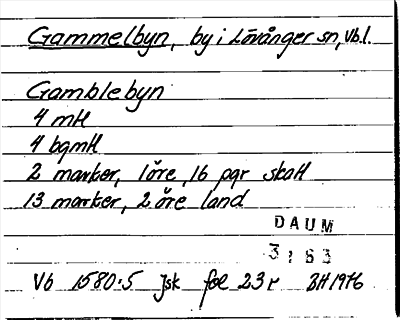 Gammelbyn, by i Lövånger sn, Vbl.
Gamblebyn
4 mtl
4 bgmtl
2 marker, 1 öre, 16 pgr skatt
13 marker, 2 öre land
DAUM
3183
Vb 1580:5 Jsk fol 23r BH 1976